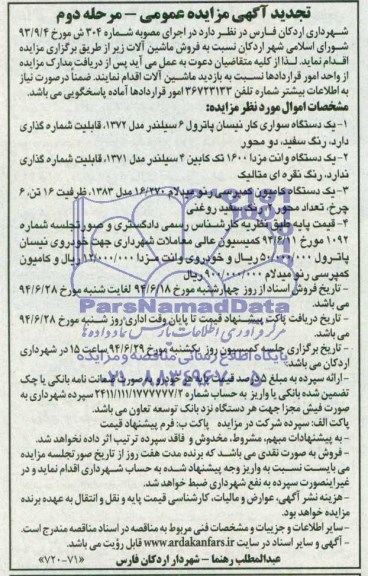 تجدید آگهی مزایده عمومی – مرحله دوم
شهرداری اردکان فارس در نظر دارد در اجرای مصوبه شماره ۳۰۴ ش مورخ ۹۳/۹/۴
شورای اسلامی شهر اردکان نسبت به فروش ماشین آلات زیر از طریق برگزاری مزایده
اقدام نماید. لذا از کلیه متقاضیان دعوت به عمل می آید پس از دریافت مدارک مزایده
از واحد امور قراردادها نسبت به بازدید ماشین آلات اقدام نمایند. ضمناً درصورت نیاز
به اطلاعات بیشتر شماره تلفن ۳۶۷۲۳۱۳۳ امور قراردادها آماده پاسخگویی می باشد.
مشخصات اموال مورد نظر مزایده:
۱- یک دستگاه سواری کار نیسان پاترول ۶ سیلندر مدل ۱۳۷۲، قابلیت شماره گذاری
دارد، رنگ سفید، دو محور
۲- یک دستگاه وانت مزدا ۱۶۰۰ تک کابین ۴ سیلندر مدل ۱۳۷۱، قابلیت شماره گذاری
ندارد، رنگ نقره ای متالیک
۳- یک دستگاه کامیون کمپرسی رنو میدلام ۱۶/۲۷۰ مدل ۱۳۸۳، ظرفیت ۱۶ تن، ۶
چرخ، تعداد محور ۲، رنگ سفید روغنی
۴- قیمت پایه طبق نظریه کارشناس رسمی دادگستری و صورتجلسه شماره
۱۰۹۲ مورخ ۹۳/۶/۱۱ کمیسیون عالی معاملات شهرداری جهت خودروی نیسان
پاترول ریال و خودروی وانت مزدا ریال و کامیون
کمپرسی رنو میدلام ۹۰۰/۰۰۰/۰۰۰ ریال
- تاریخ فروش اسناد از روز چهارشنبه مورخ ۹۴/۶/۱۸ لغایت شنبه مورخ ۹۴/۶/۲۸
می باشد.
- تاریخ دریافت پاکت پیشنهاد قیمت تا پایان وقت اداری روز شنبه مورخ ۹۴/۶/۲۸
می باشد.
- تاریخ برگزاری جلسه کمیسیون روز یکشنبه مورخ ۹۴/۶/۲۹ ساعت ۱۵ در شهرداری
اردکان می باشد.
- ارائه سپرده به مبلغ ۵ درصد قیمت پایه هر خودرو به صورت ضمانت نامه بانکی یا چک
تضمین شده بانکی یا واریز به حساب شماره سپرده شهرداری به
صورت فیش مجزا جهت هر دستگاه نزد بانک توسعه تعاون می باشد.
پاکت الف: سپرده شرکت در مزایده پاکت ب: فرم پیشنهاد قیمت
- به پیشنهادات مبهم، مشروط، مخدوش و فاقد سپرده ترتیب اثر داده نخواهد شد.
- فروش به صورت نقدی می باشد که برنده مدت هفت روز از تاریخ صورتجلسه مزایده
می بایست نسبت به واریز وجه پیشنهاد شده به حساب شهرداری اقدام نماید و در
غیراینصورت سپرده به نفع شهرداری ضبط خواهد شد.
- هزینه نشر آگهی، عوارض و مالیات، کارشناسی قیمت پایه و نقل و انتقال به عهده برنده
مزایده خواهد بود.
- سایر اطلاعات و جزییات و مشخصات فنی مربوط به مناقصه در اسناد مناقصه مندرج است.
- آگهی و سایر اسناد در سایت www.ardakanfars.ir قابل رؤیت می باشد.
عبدالمطلب رهنما – شهردار اردکان فارس «۷۲۰-۷۱»
ParsNamadData
پایگاه اطلاع رسانی مناقصه و مزایده
۰۲۱-۸۸۳۴۹۶۷۰-۵